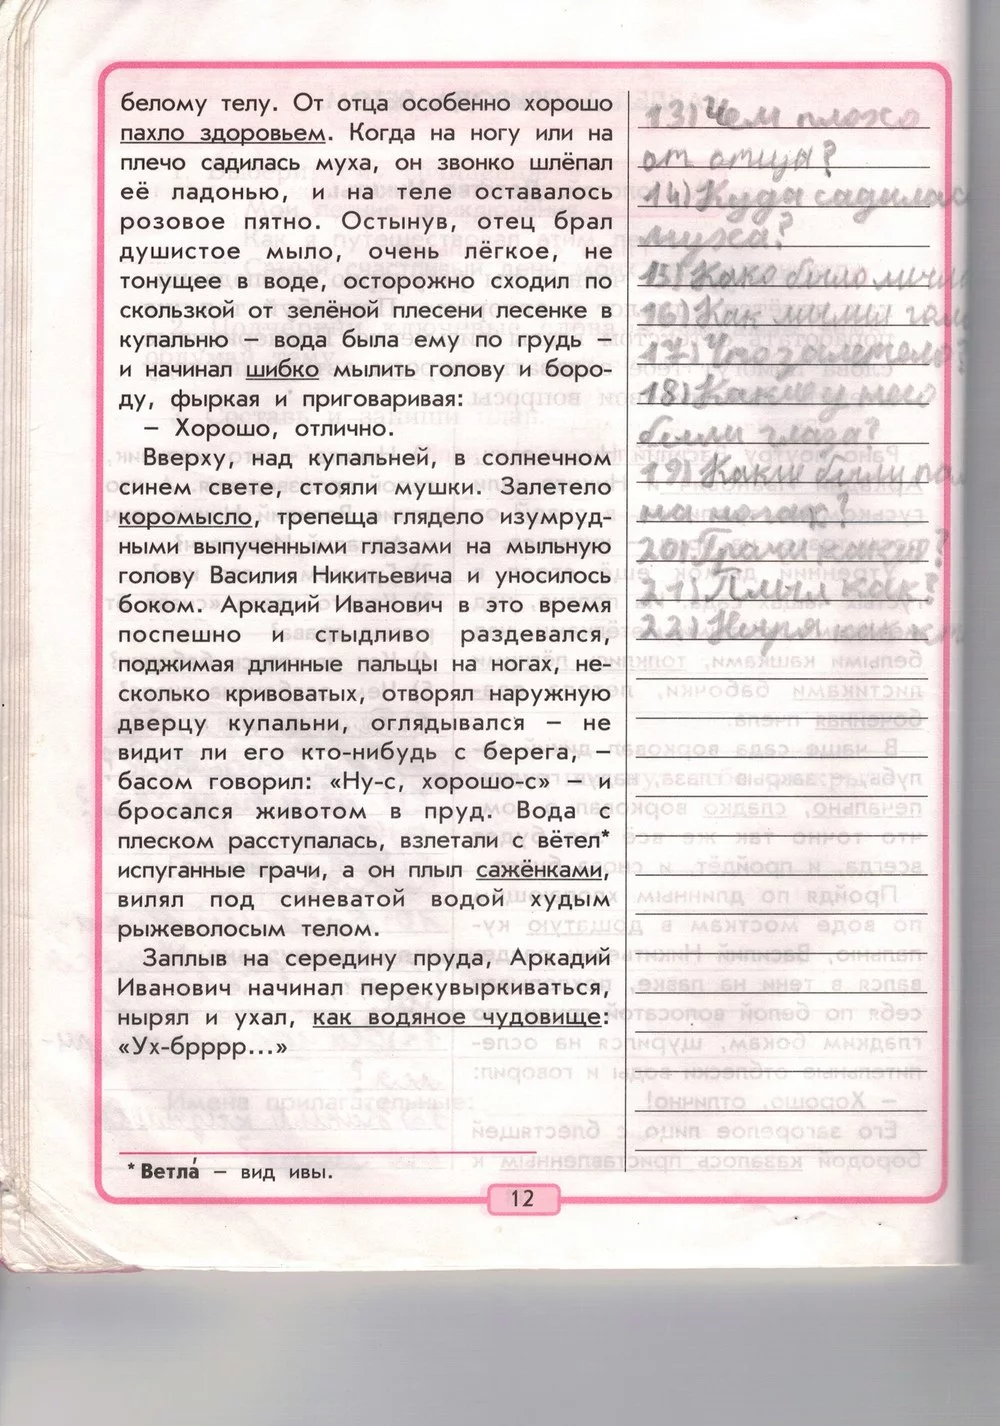 белому телу. От отца особенно хорошо
пахло здоровьем. Когда на ногу или на
плечо садилась муха, он звонко шлёпал
её ладонью, и на теле оставалось
розовое пятно. Остынув, отец брал
душистое мыло, очень лёгкое, не
тонущее в воде, осторожно сходил по
скользкой от зелёной плесени лесенке в
купальню – вода была ему по грудь –
и начинал шибко мылить голову и боро-
ду, фыркая и приговаривая:
– Хорошо, отлично.
Вверху, над купальней, в солнечном
синем свете, стояли мушки. Залетело
коромысло, трепеща глядело изумруд-
ными выпученными глазами на мыльную
голову Василия Никитьевича и уносилось
боком. Аркадий Иванович в это время
поспешно и стыдливо раздевался,
поджимая длинные пальцы на ногах, не-
сколько кривоватых, отворял наружную
дверцу купальни, оглядывался – не
видит ли его кто-нибудь с берега, –
басом говорил: «Ну-с, хорошо-с» – и
бросался животом в пруд. Вода с
плеском расступалась, взлетали с вётел*
испуганные грачи, а он плыл сажёнками,
вилял под синеватой водой худым
рыжеволосым телом.
Заплыв на середину пруда, Аркадий
Иванович начинал перекувыркиваться,
нырял и ухал, как водяное чудовище:
«Ух-брррр...»
* Ветла́ – вид ивы.
12
13) Чем плохо
от отца?
14) Куда садилас
муха?
15) Како было
16) Как
17) Что залетело?
18) Какие у него
были глаза?
19) Какие были пал
на ногах?
20) Грачи какие?
21) Плыл как?
22) Нырял как